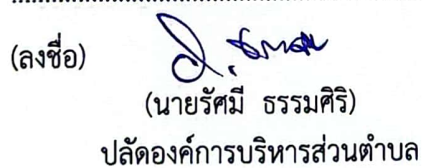 (ลงชื่อ)
(นายรัศมี ธรรมศิริ)
ปลัดองค์การบริหารส่วนตำบล